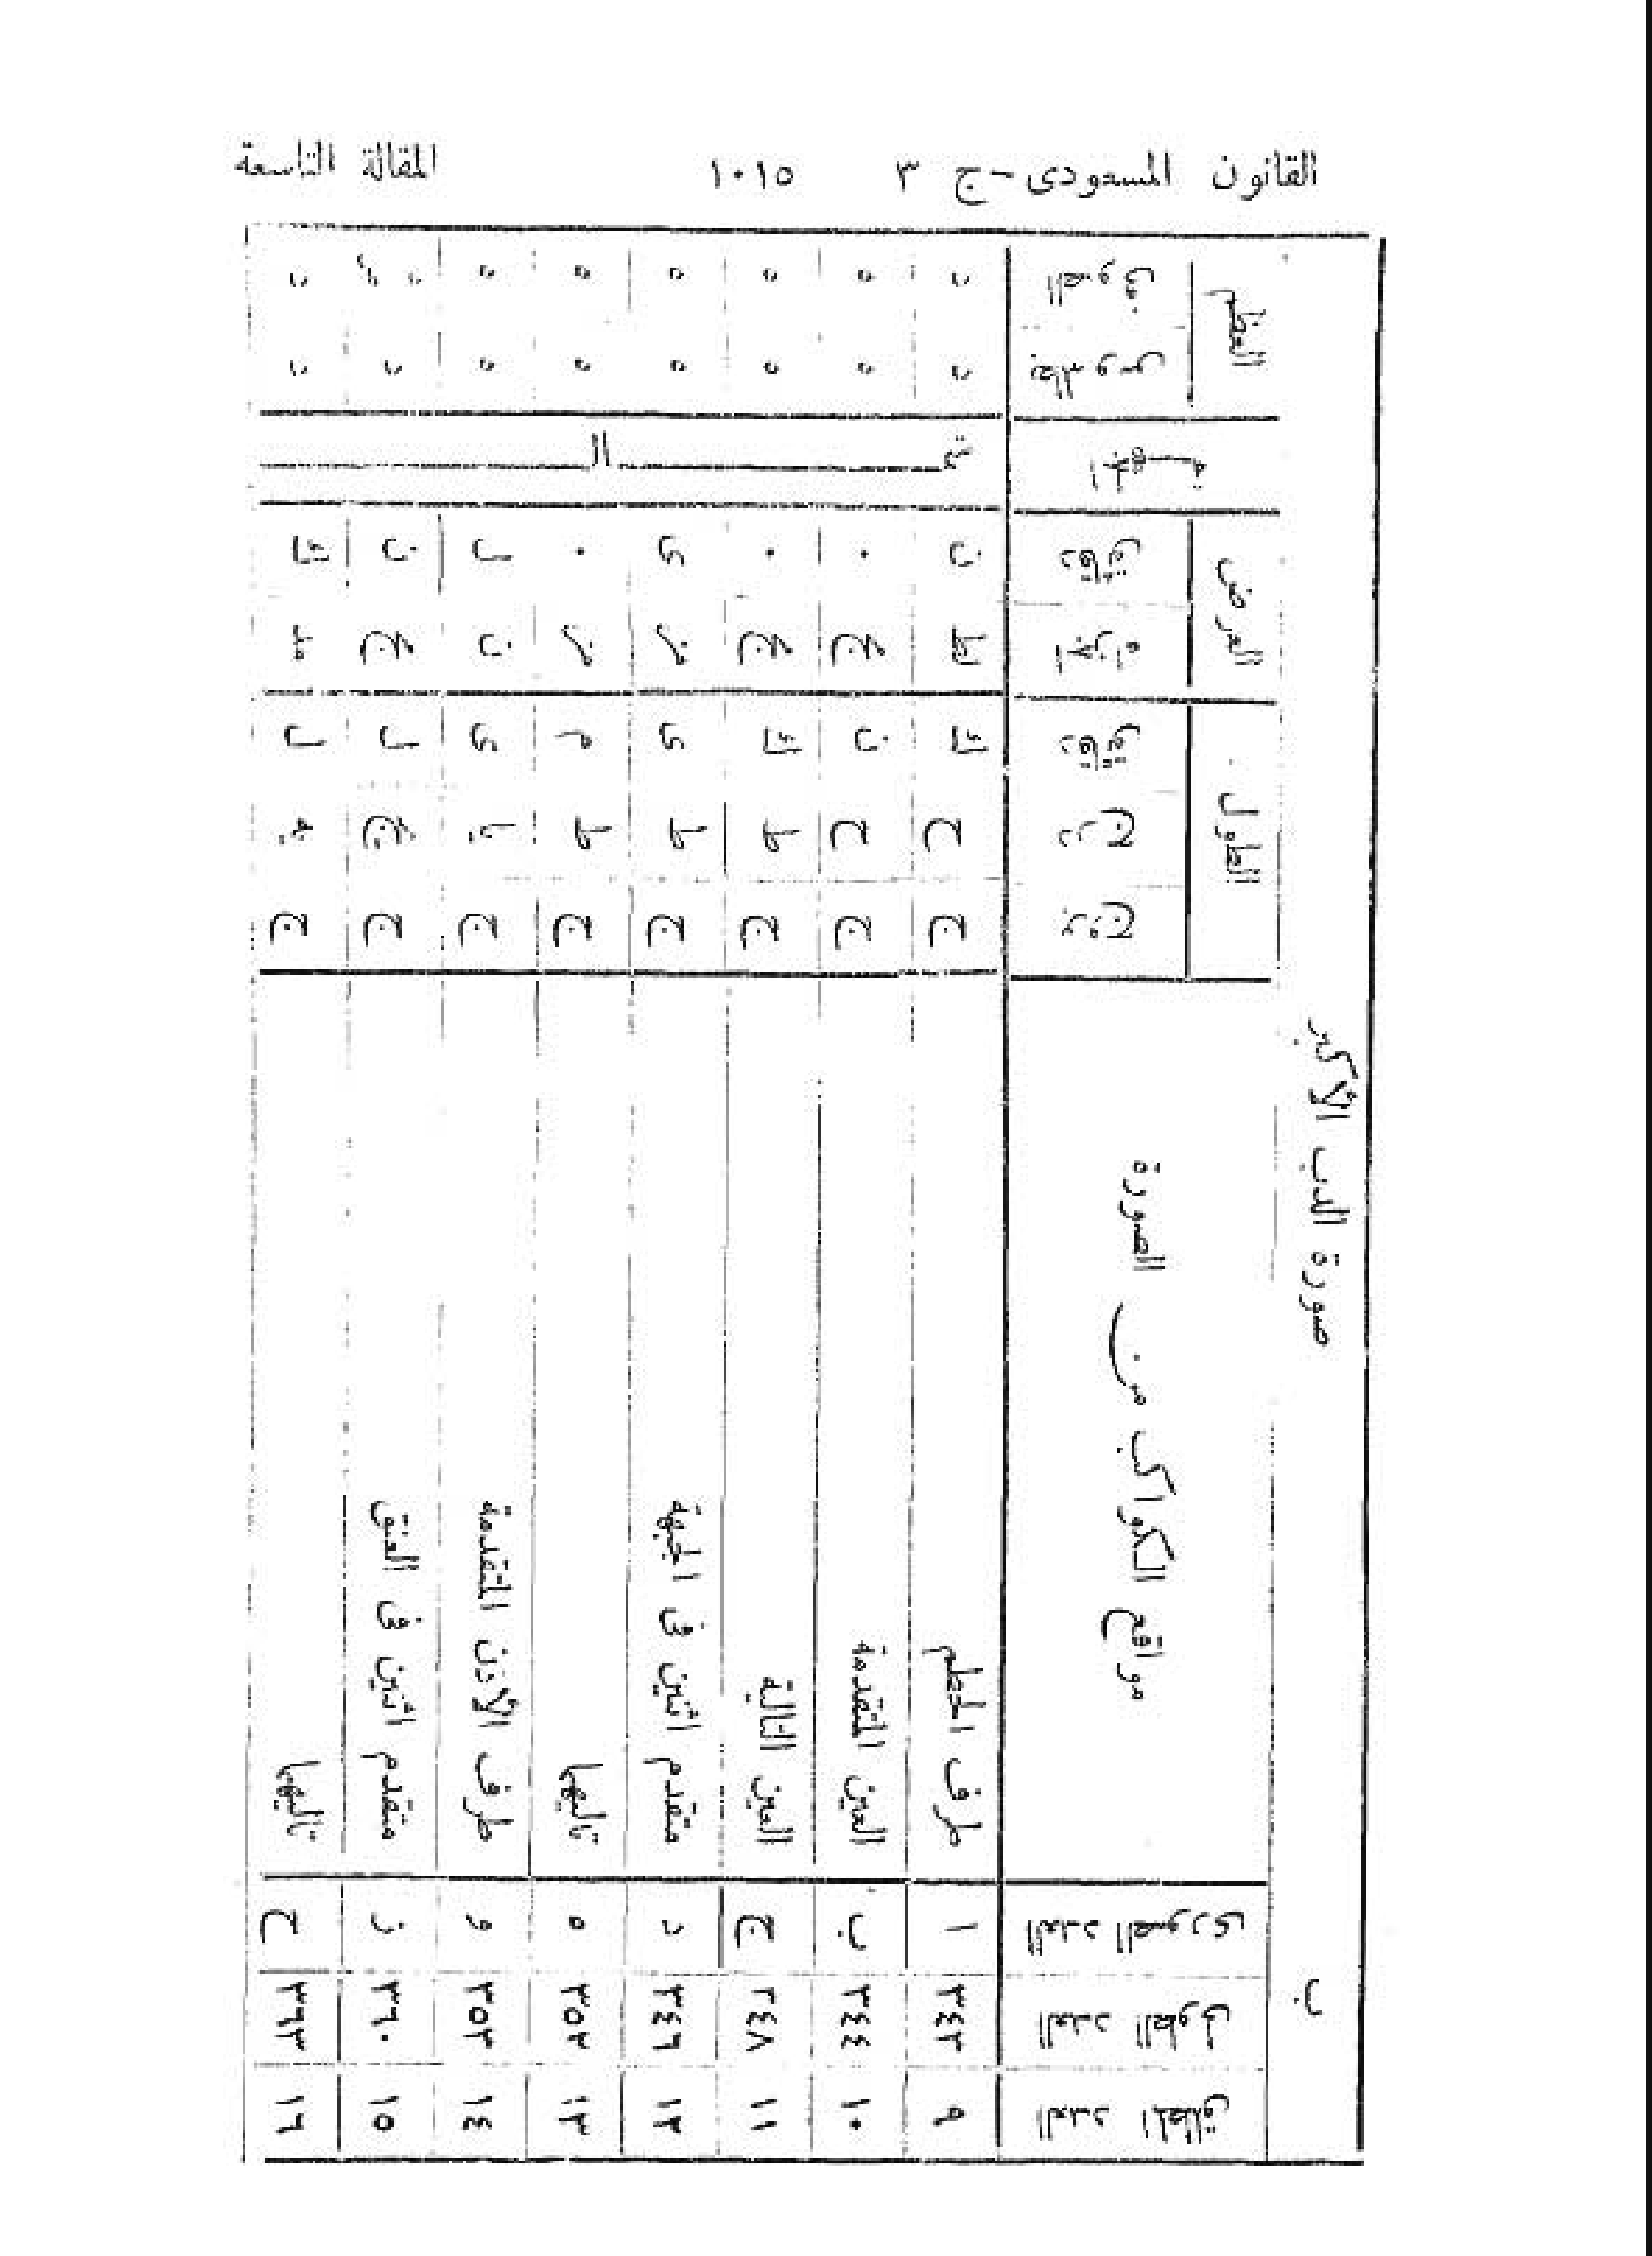 القانون المسعودى-ج ٣ ١٠١٥ المقالة التاسعة
صورة الدب الأكبر
ب
العدد المطلق العدد الطولى العدد الصورى مواقع الكواكب من الصورة الطول العرض الجهة العظم
بروج درج دقائق اجزاء دقائق بطلميوس الصوفى
٩ ٣٤٣ ا طرف الخطم ج ح ك لط ن ه ه
١٠ ٣٤٤ ب العين المتقدمة ج ح ن مج ٠ ه ه
١١ ٣٤٨ ج العين التالية ج ط ك مج ٠ ه ه
١٢ ٣٤٦ د متقدم اثنين فى الجبهة ج ط ى مز ى ه ه
١٣ ٣٥٢ ه تاليهما ج ط م مز ٠ ه ه
١٤ ٣٥٣ و طرف الاذن المتقدمة ج يا ى ن ل ه ه
١٥ ٣٦٠ ز متقدم اثنين فى العنق ج يج ل مج ن
١٦ ٣٦٣ ح تاليهما ج يه ل مد ك